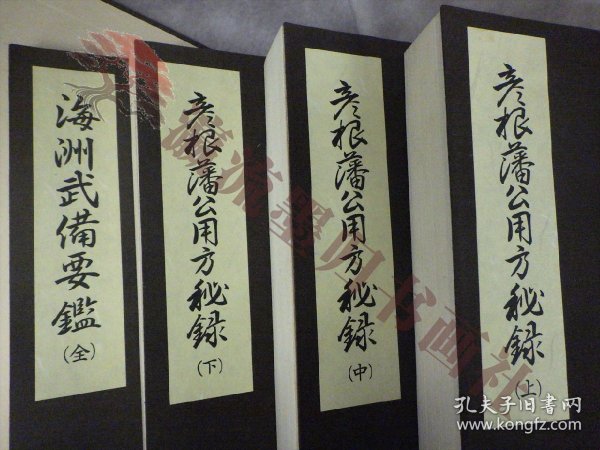 彦根藩公用方秘録(上)
彦根藩公用方秘録(中)
彦根藩公用方秘録(下)
海洲武備要鑑(全)
孔夫子旧书网
www.kongfz.com